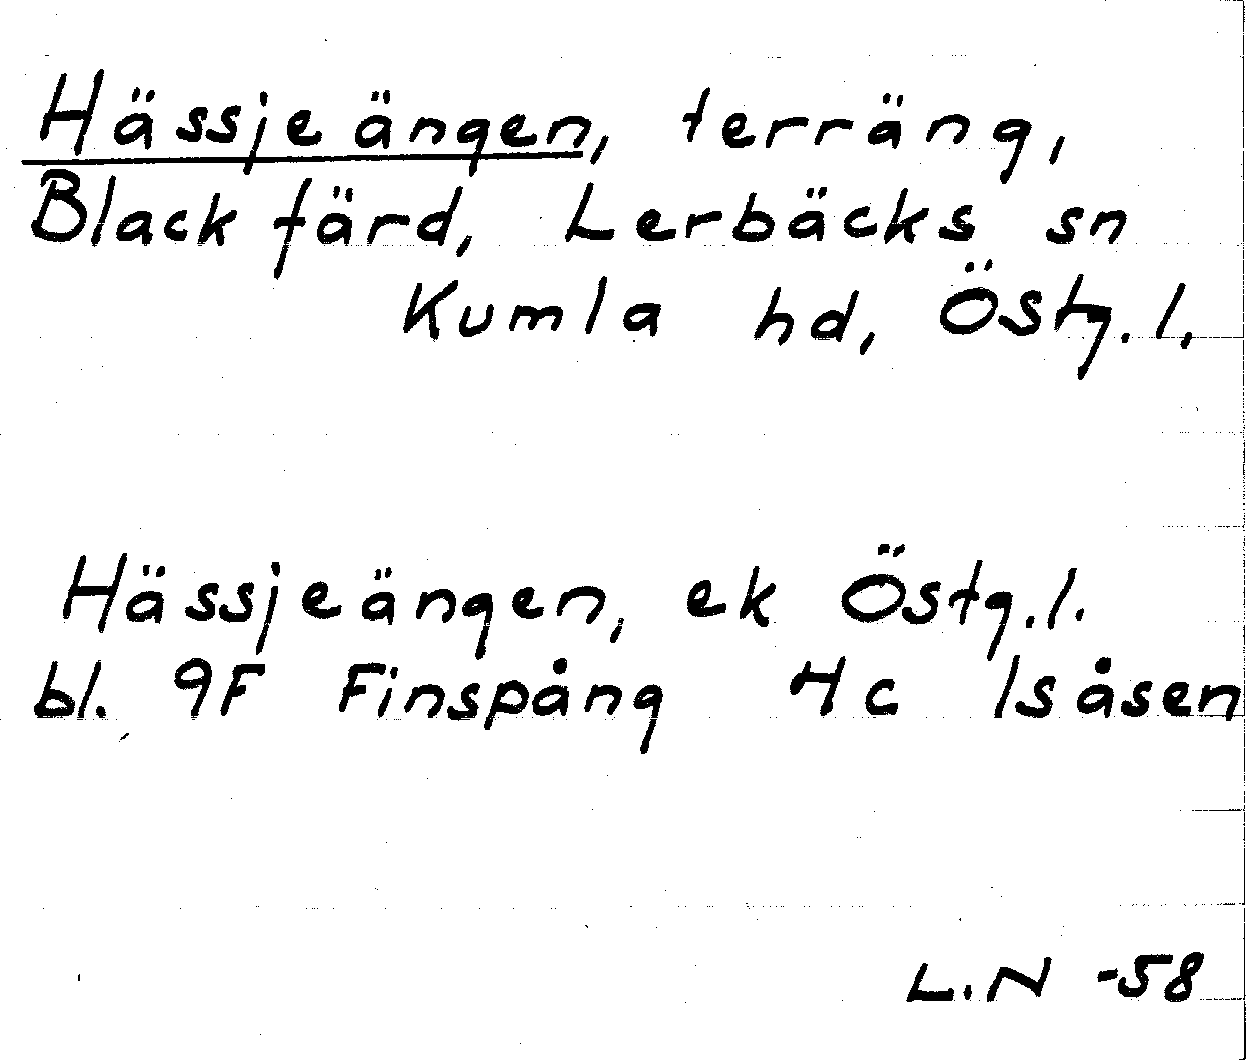 Hässjeängen, terräng,
Black färd, Lerbäcks sn
Kumla hd, Östg.l.
Hässjeängen, ek Östg.l.
bl. 9F Finspång 4c Isåsen
L.N -58